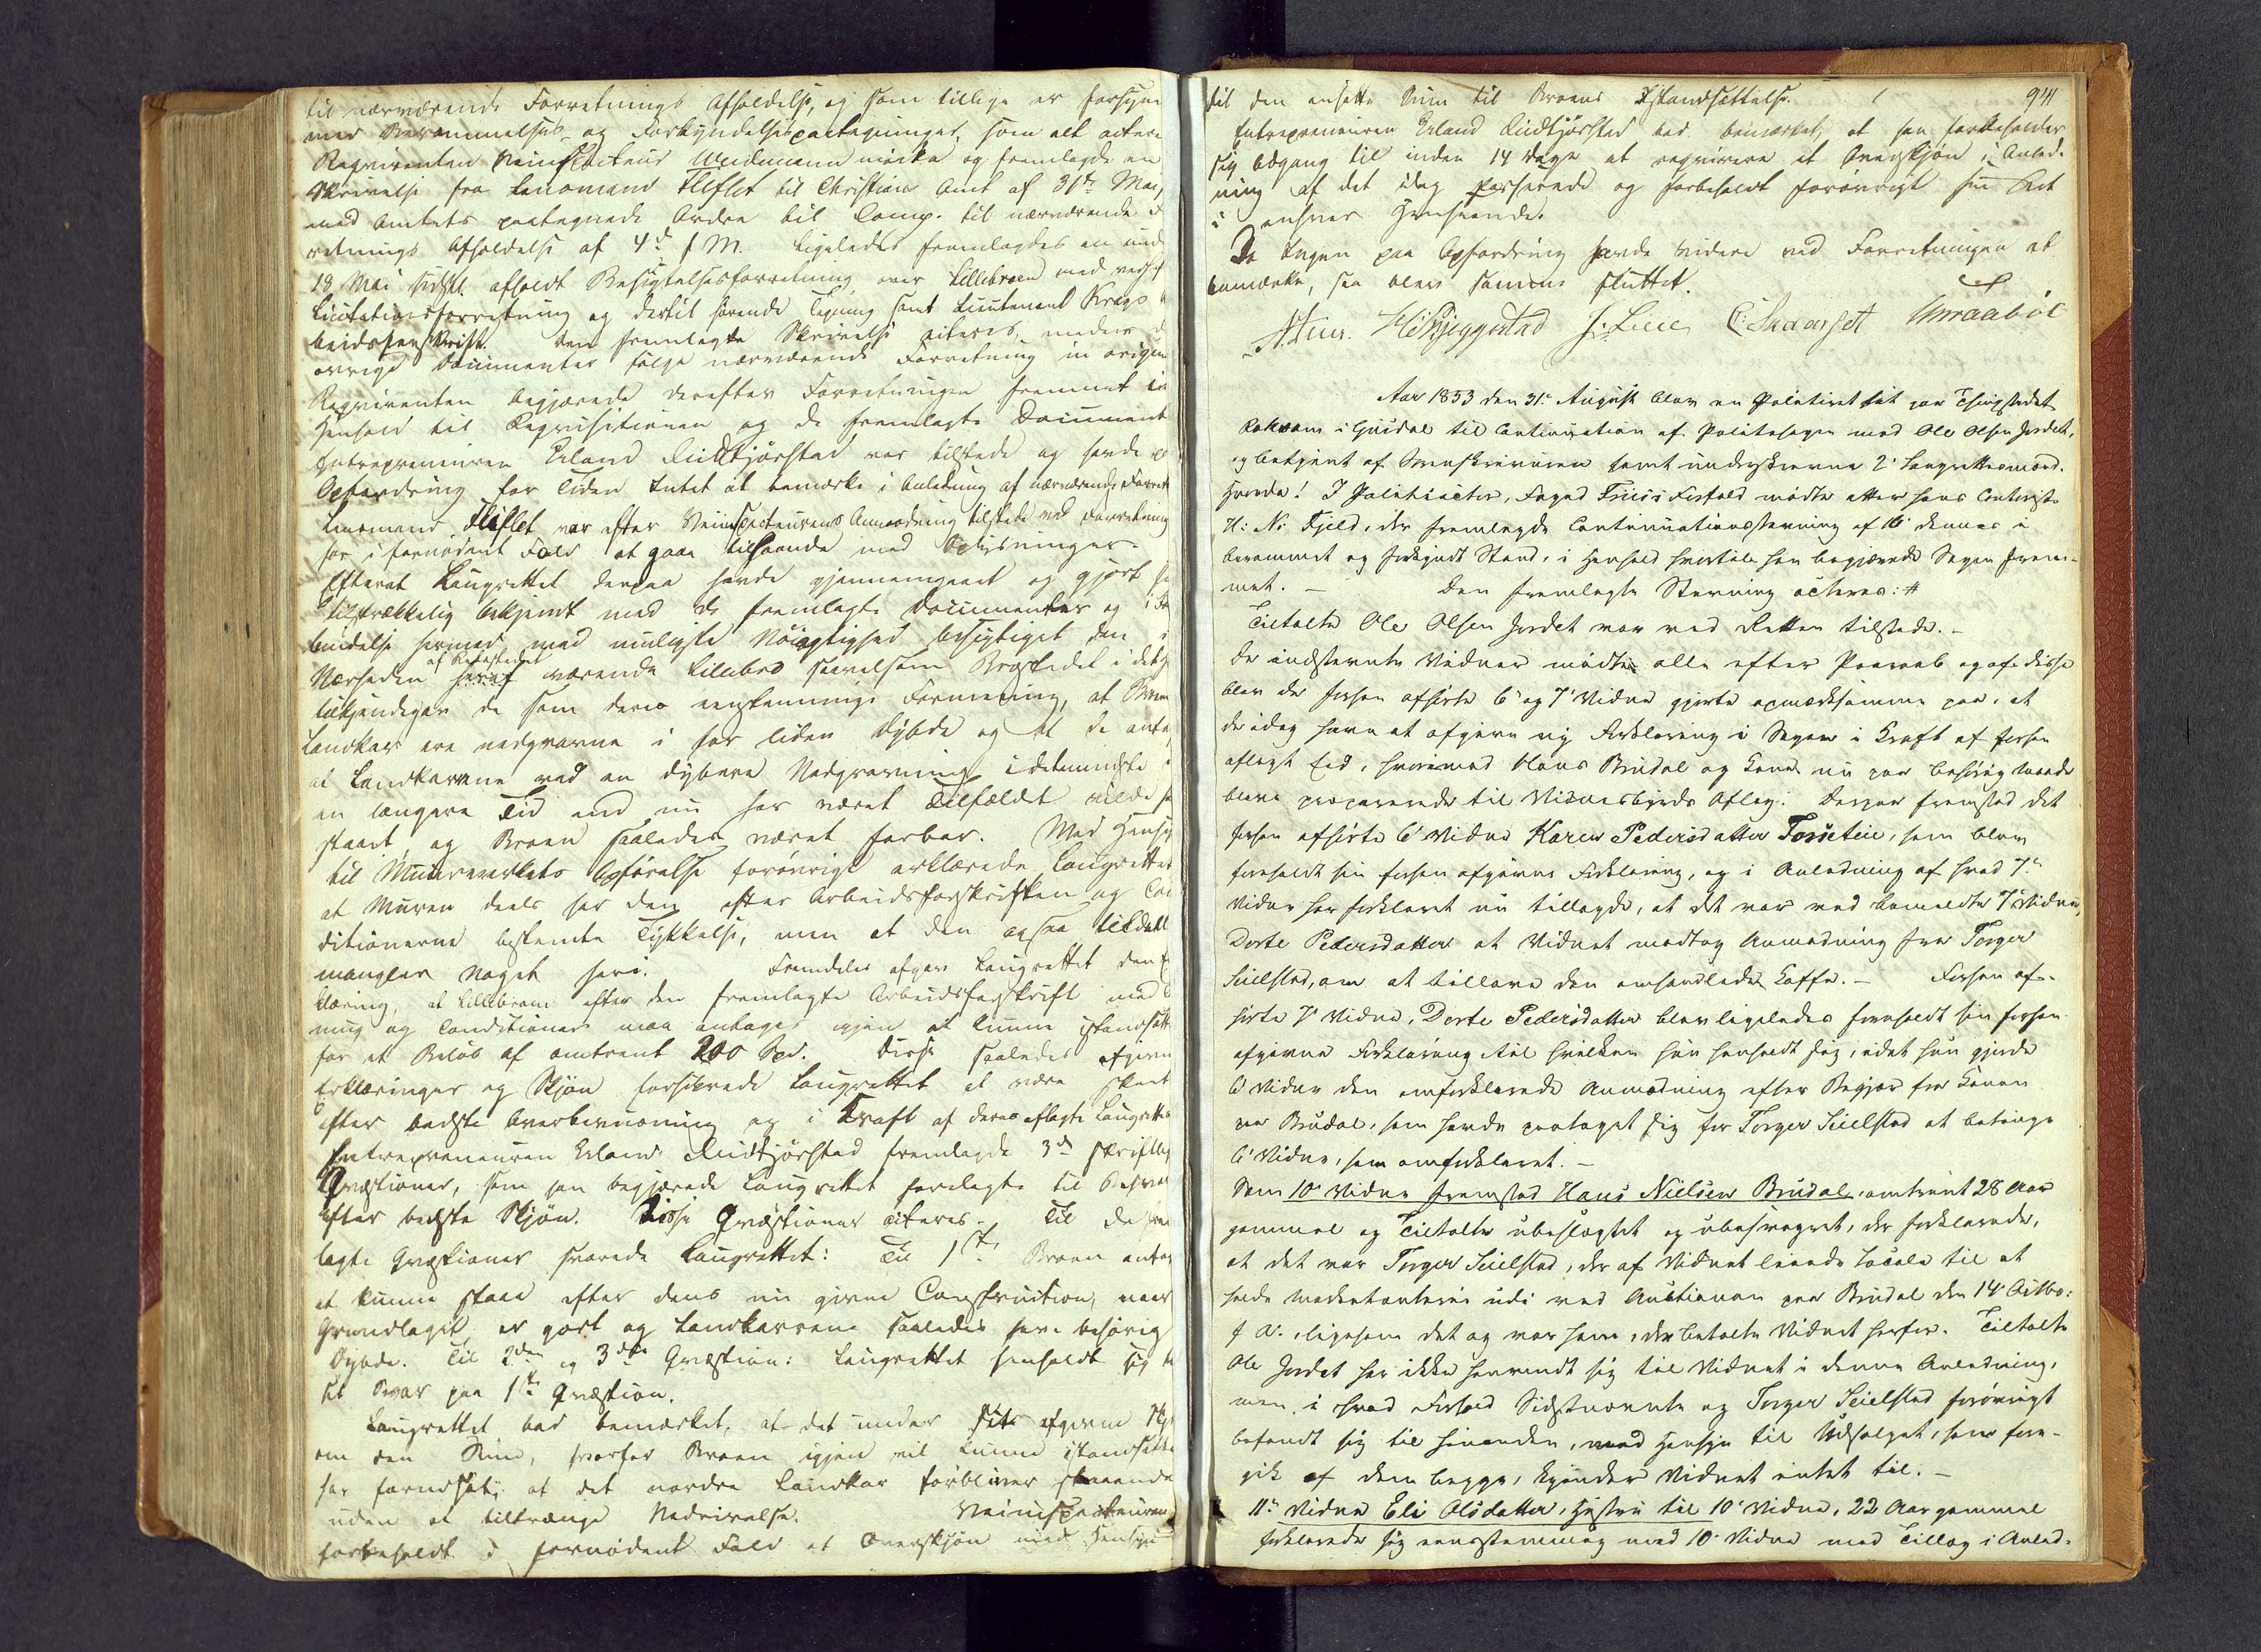 til nærværende Forretnings Afholdelse, og som tillige er forsyne
med Berammelses- og Forkyndelsespaategninger, som alt actere
Reqvirenten Veiinspecteur Weidemann mødte og fremlagde en
Skrivelse fra Lensmand Fliflet til Christians Amt af 31te Mai,
med Amtets paategnede Ordre til Comp. til nærværende F
retnings Afholdelse af 4de f. M. Ligeledes fremlagdes en und
18 Mai sidstl. afholdt Besigtelsesforretning over Lillebroen med
Licitationsforretning og dertil hørende Tegning samt Lieutenant Krags
beidsforskrift. Den fremlagte Skrivelse acteres, medens d
øvrige Documenter følge nærværende Forretning in origin
Reqvirenten begjærede derefter Forretningen fremmet i
Henhold til Reqvisitionen og de fremlagte Document
Entrepreneuren Erland Rudtjørstad var tilstede og havde
Opfordring for Tiden Intet at bemærke i Anledning af nærværende Forret
Lensmand Fliflet var efter Veiinspecteurens Anmodning tilstede ved Forretning
for i fornødent Fald at gaae tilhaande med Oplysninger.
Efterat Laugrettet derpaa havde gjennemgaaet og gjort
tilstrækkelig bekjendt med de fremlagte Documenter og i
bindelse hermed med muligste Nøiagtighed besigtiget den i
Nærheden af Retsstedet værende Lillebro saavelsom Brostedet i det
tilkjendegav de som deres eenstemmige Formening, at
Landkar ere nedgravne i for liden Dybde og at de anta
at Landkarrene ved en dybere Nedgravning idetmindste
en længere Tid end nu har været Tilfældet vilde
staaet, og Broen saaledes været farbar. Med Hensyn
til Muurværkets Opførelse forøvrigt erklærede Laugrettet
at Muren deels har den efter Arbeidsforskriften og Con
ditionerne bestemte Tykkelse, men at den ogsaa tildeels
mangler noget heri. Fremdeles afgav Laugrettet den
klæring, at Lillebroen efter den fremlagte Arbeidsforskrift med
ning og Conditioner maa antages igjen at kunne istandsætt
for et Beløb af omtrent 200 Spd. Disse saaledes afgivne
Erklæringer og Skjøn forsikrede Laugrettet at være skeet
efter bedste Overbeviisning og i Kraft af deres aflagte Laugrettes
Entrepreneuren Erland Rudtjørstad fremlagde 3de skriftlig
Qvæstioner, som han begjærede Laugrettet forelagte til Besvar
efter bedste Skjøn. Disse Qvæstioner acteres. Til de frem
lagte Qvæstioner svarede Laugrettet: Til 1ste Broen antag
at kunne staae efter dens nu givne Construction, naar
Grundlaget er godt og Landkarrene saaledes have behørig
Dybde. Til 2den og 3die Qvæstion: Laugrettet henholdt sig
sit Svar paa 1ste Qvæstion.
Laugrettet bad bemærket, at det under sit afgivne Skj
om den Sum, hvorfor Broen igjen vil kunne istandsætte
har forudsat, at det nordre Landkar forbliver staaende
uden at tiltrænge Nedrivelse. Veiinspecteuren
forbeholdt i fornødent Fald et Overskjøn med Hensyn
til den ansatte Sum til Broens Istandsættelse. 94
Entrepreneuren Erland Rudtjørstad bad bemærket, at han forbeholder
sig Adgang til inden 14 Dage at reqvirere et Overskjøn i Anled-
ning af det idag Passerede og forbeholdt forøvrigt sin Ret
i enhver Henseende.
Da Ingen paa Opfordring havde videre ved Forretningen at
bemærke, saa blev samme sluttet.
HOkjeggestad J. Lue
Aar 1853 den 31te August blev en Politiret sat paa Thingstedet
i Gusdal til Continuation af Politisagen mod Ole Olsen Jordet,
og betjent af Sorenskriveren samt underskrevne 2de Laugrettesmænd.
Hvorda! I Politiacter, Foged Friis Forfald mødte atter hans Contorist
H: N: Fjeld, der fremlagde Continuationsstævning af 16 dennes i
berammet og forkyndt Stand, i Henhold hvortil han begjærede Sagen frem-
met. – Den fremlagte Stævning acteres: #
Tiltalte Ole Olsen Jordet var ved Retten tilstede. –
De indstævnte Vidner mødte alle efter Paaraab og af disse
blev de forhen afhørte 6te og 7de Vidne gjorte opmærksomme paa, at
de idag have at afgive ny Forklaring i Sagen i Kraft af forhen
aflagt Eed, hvorimod Hans Brudal og Kone nu paa behørig Maade
bleve præparerede til Vidnesbyrds Aflæg. Derpaa fremstod det
forhen afhørte 6te Vidne Karen Pedersdatter Torsteie, som blev
foreholdt sin forhen afgivne Forklaring, og i Anledning af hvad 7de
Vidne har forklaret nu tillagde, at det var ved bemeldte 7de Vidne,
Dorte Pedersdatter at Vidnet modtog Anmodning fra Torger
Suelstad, om at tillave den omhandlede Kaffe. – Forhen af-
hørte 7de Vidne, Dorte Pedersdatter blev ligeledes foreholdt sin forhen
afgivne Forklaring til hvilken hun henholdt sig, idet hun gjorde
6te Vidne den omforklarede Anmodning efter Begjær fra Konen
paa Brudal, som havde paataget sig for Torger Suelstad at betinge
6te Vidne, som omforklaret. –
Som 10de Vidne fremstod Hans Nielsen Brudal, omtrent 28 Aar
gammel og Tiltalte ubeslægtet og ubesvogret, der forklarede,
at det var Torger Suelstad, der af Vidnet leiede Locale til at
holde Marketenteri udi ved Auctionen paa Brudal den 14de Octbr:
f. A., ligesom det og var ham, der betalte Vidnet herfor. Tiltalte
Ole Jordet har ikke henvendt sig til Vidnet i denne Anledning,
men i hvad Forhold Sidstnævnte og Torger Suelstad forøvrigt
befandt sig til hinanden, med Hensyn til Udsalget, som fore-
gik af dem begge, kjender Vidnet intet til. –
11te Vidne Eli Olsdatter, Hustru til 10de Vidne, 22 Aar gammel
forklarede sig eensstemmig med 10de Vidne med Tillæg i Anled-